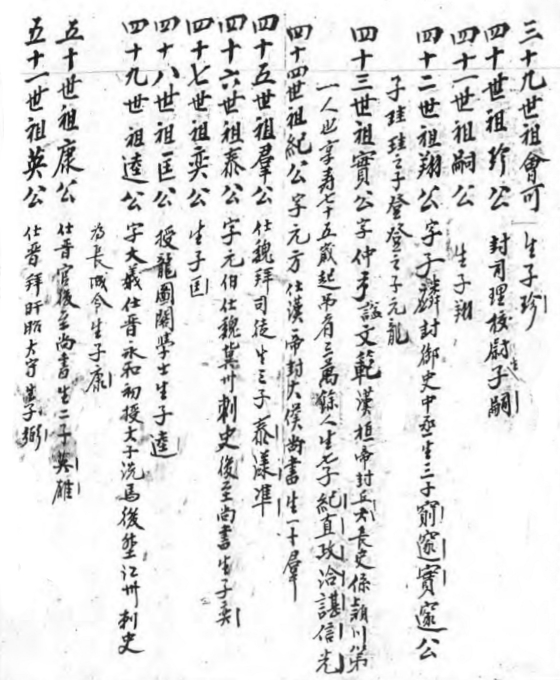 三十九世祖會可 生子珍
四十世祖珍公 封司理校尉生子嗣
四十一世祖嗣公 生子翔
四十二世祖翔公字子鱗封御史中丞生三子窮邃寔邃公
子珪珪之子登登之子元龍
四十三世祖寔公字仲弓謚文範漢桓帝封丘長史係潁川第
一人也字寿七十五歲起吊者三萬餘人生七子紀直政洽諶信光
四十四世祖紀公字元方仕漢一帝封大僕尚書生一子羣
四十五世祖羣公 仕魏拜司徒生三子泰漾準
四十六世祖泰公 字元伯仕魏冀州刺史後至尚書生子奕
四十七世祖奕公 生子匡
四十八世祖匡公 授龍圖閣學士生子逵
四十九世祖逵公 字大義仕晉永和初授太子洗馬後陞江州刺史
為長城令生子康
五十世祖康公 仕晉官後至尚書生二子英雄
五十一世祖英公 仕晉拜盱眙太守生子弼